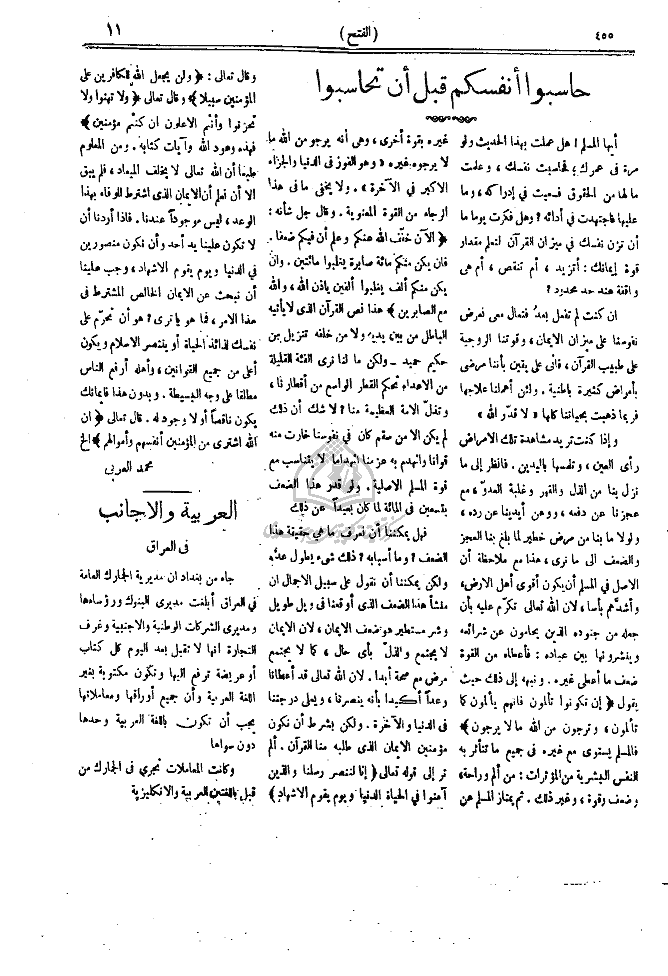 ٤٥٥
( الفتح )
١١
حاسبوا أنفسكم قبل أن تحاسبوا
أيها المسلم ! هل عملت بهذا الحديث ولو
مرة في عمرك ؛ فحاسبت نفسك ، وعلمت
مالها من الحقوق فسعيت في إدراكه ، وما
عليها فاجتهدت في أدائه ؟ وهل فكرت يوما ما
أن تزن نفسك في ميزان القرآن لتعلم مقدار
قوة إيمانك : أتزيد ، أم تنقص ، أم هى
واقفة عند حد محدود ؟
ان كنت لم تفعل بعدُ فتعال معى نعرض
نفوسنا على ميزان الايمان ، وقوتنا الروحية
على طبيب القرآن ، فانى على يقين بأننا مرضى
بأمراض كثيرة باطنية . ولئن أهملنا علاجها
فربما ذهبت بحياتنا كلها « لا قدّر الله »
و اذا كنت تريد مشاهدة تلك الامراض
رأى العين ، ولمسها باليدين . فانظر إلى ما
نزل بنا من الذل والقهر وغلبة العدوّ ، مع
عجزنا عن دفعه ، ووهن أيدينا عن رده ،
ولولا ما بنا من مرض خطير لما بلغ بنا العجز
والضعف الى ما نرى ، هذا مع ملاحظة أن
الاصل في المسلم أن يكون أقوى أهل الارض
وأشدَّهم بأسا ، لان الله تعالى تكرّم عليه بأن
جعله من جنوده الذين يحامون عن شرائعه
وينشرونها بين عباده : فأعطاه من القوة
ضعف ما أعطى غيره . ونبهه إلى ذلك حيث
يقول ﴿ إن تكونوا تألمون فانهم يألمون كما
تألمون ، وترجون من الله ما لا يرجون ﴾
فالمسلم يستوى مع غيره في جميع ما تتأثر به
النفس البشرية من المؤثرات : من ألم وراحة ،
وضعف وقوة ، وغير ذلك . ثم يمتاز المسلم عن
غيره بقوة أخرى ، وهى أنه يرجو من الله ما
لا يرجوه غيره « وهو الفوز فى الدنيا والجزاء
الاكبر في الآخرة » . ولا يخفى ما فى هذا
الرجاء من القوة المعنوية . وقال جل شأنه :
﴿ الآن خفف الله عنكم وعلم أن فيكم ضعفا .
فان يكن منكم مائة صابرة يغلبوا مائتين . وان
يكن منكم ألف يغلبوا ألفين باذن الله ، والله
مع الصابرين ﴾ هذا نص القرآن الذى لا يأتيه
الباطل من بين يديه ولا من خلفه تنزيل من
حكيم حميد – ولكن ما لنا نرى الفئة القليلة
من الاعداء تحكم القطر الواسع من أقطارنا ،
وتذلّ الامة العظيمة منا ؟ لا شك أن ذلك
لم يكن الا من سقم كان فى نفوسنا خارت منه
قوانا وانهدم به عزمنا انهداما لا يتناسب مع
قوة المسلم الاصلية . ولو قدر هذا الضعف
بتسعين فى المائة لما كان بعيداً عن ذلك
فهل يمكننا أن نعرف ما هى حقيقة هذا
الضعف ؟ وما أسبابه ؟ ذلك شىء يطول عدّه
ولكن يمكننا أن نقول على سبيل الاجمال ان
منشأ هذا الضعف الذى أوقعنا فى ويل طويل
وشر مستطير هو ضعف الايمان ، لان الايمان
لا يجتمع والذلّ بأى حال ، كما لا يجتمع
مرض مع صحة أبدا . لان الله تعالى قد أعطانا
وعداً أكيدا بأنه ينصرنا ، ويعلى درجتنا
فى الدنيا والآخرة . ولكن بشرط أن نكون
مؤمنين الايمان الذى طلبه منا القرآن . ألم
تر إلى قوله تعالى ﴿ إنا لننصر رسلنا والذين
آمنوا في الحياة الدنيا ويوم يقوم الاشهاد ﴾
وقال تعالى : ﴿ ولن يجعل الله للكافرين على
المؤمنين سبيلا ﴾ وقال تعالى ﴿ ولا تهنوا ولا
تحزنوا وأنتم الاعلون ان كنتم مؤمنين ﴾
فهذه وعود الله وآيات كتابه . ومن المعلوم
علينا أن الله تعالى لا يخلف الميعاد ، فلم يبق
الا أن نعلم أن الايمان الذى اشترط للوفاء بهذا
الوعد ، ليس موجوداً عندنا . فاذا أردنا أن
لا تكون علينا يد أحد وأن نكون منصورين
فى الدنيا ويوم يقوم الاشهاد ، وجب علينا
أن نبحث عن الايمان الخالص المشترط فى
هذا الامر ، فما هو يا ترى ؟ هو أن تحرّم على
نفسك لذائذ الحياة أو ينتصر الاسلام ويكون
أعلى من جميع القوانين ، وأهله أرفع الناس
مطلقا على وجه البسيطة . وبدون هذا فايمانك
يكون ناقصاً أو لا وجود له . قال تعالى ﴿ ان
الله اشترى من المؤمنين أنفسهم وأموالهم ﴾ الخ
محمد العربى
العربية والاجانب
فى العراق
جاء من بغداد ان مديرية الجمارك العامة
فى العراق أبلغت مديرى البنوك ورؤساءها
ومديرى الشركات الوطنية والاجنبية وغرف
التجارة انها لا تقبل بعد اليوم كل كتاب
أو عريضة ترفع اليها وتكون مكتوبة بغير
اللغة العربية وأن جميع أوراقها ومعاملاتها
يجب أن تكون باللغة العربية وحدها
دون سواها
وكانت المعاملات تجري فى الجمارك من
قبل باللغتين العربية والانكليزية